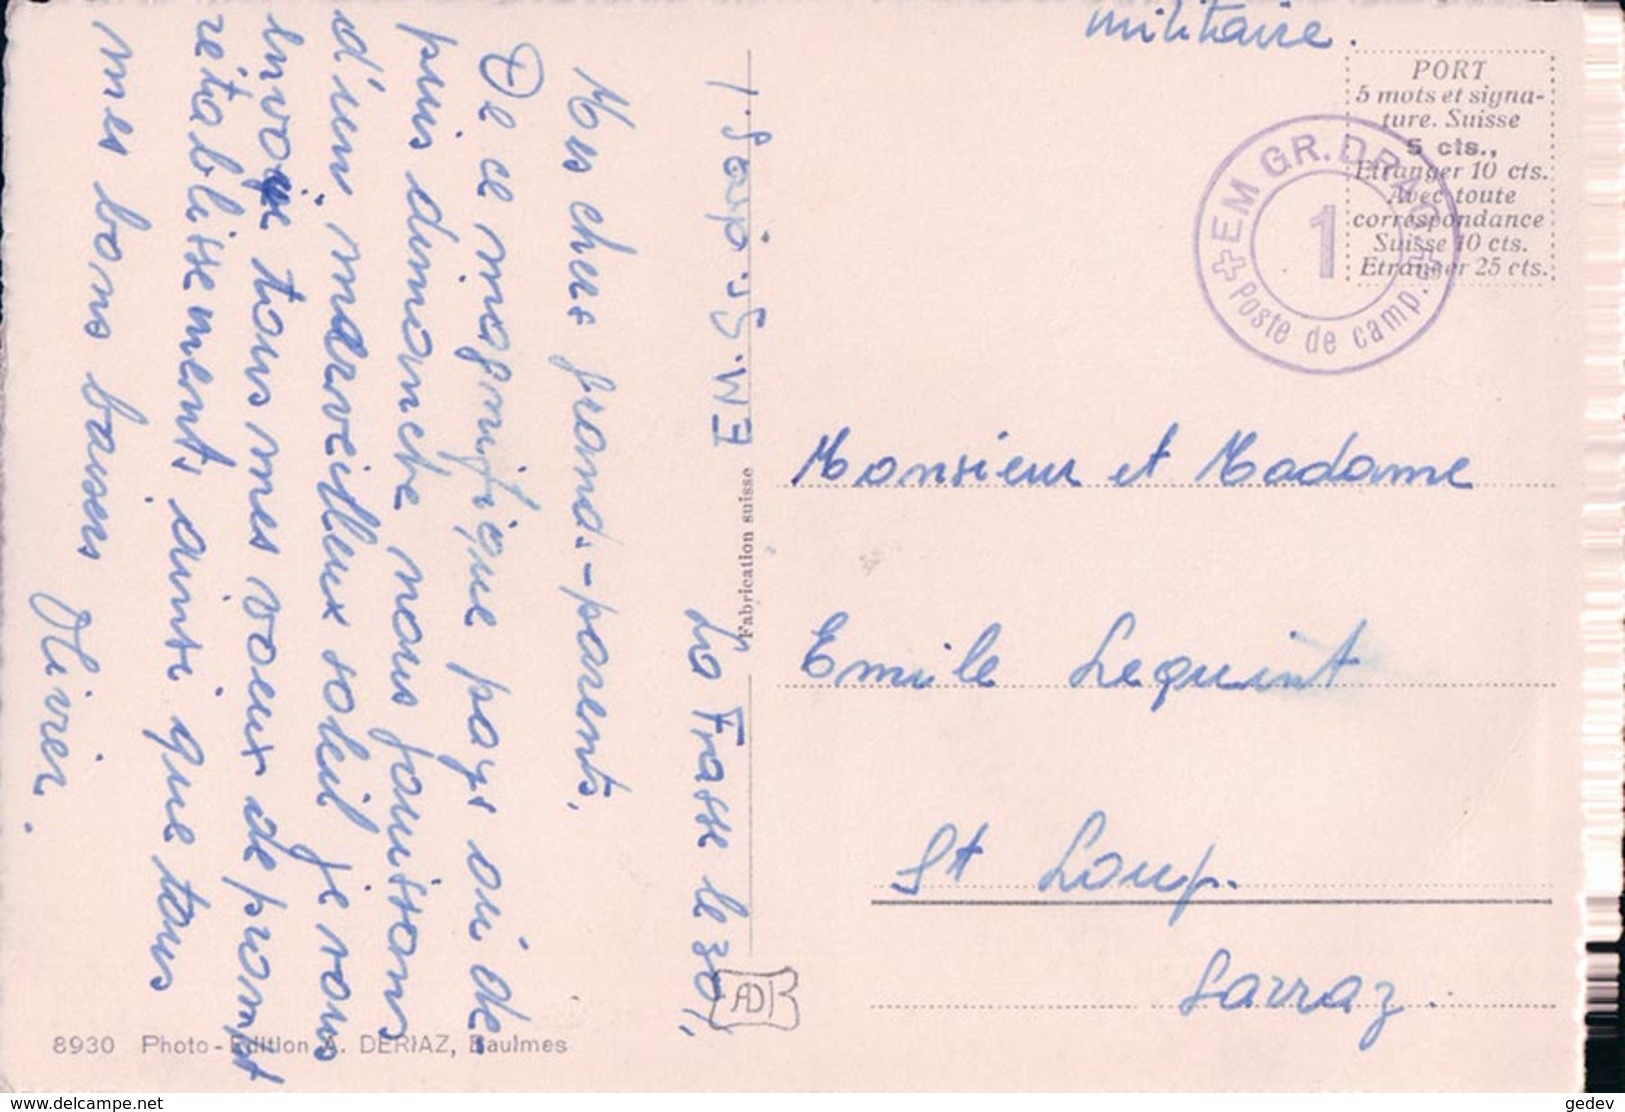 militaire.
PORT
5 mots et signa-
ture. Suisse
5 cts.,
Etranger 10 cts.
Avec toute
correspondance
Suisse 10 cts.
Etranger 25 cts.
EM GR. DR
1
Poste de camp.
Monsieur et Madame
Emile Lequint
St Loup.
Sarraz.
Fabrication suisse
La Frasse le 30
Mes chers grands-parents,
De ce magnifique pays où de-
puis dimanche nous jouissons
d'un merveilleux soleil je vous
envoie tous mes voeux de prompt
rétablissement, ainsi que tous
mes bons baisers
Olivier.
AD
8930 Photo-Edition A. DERIAZ, Baulmes
www.delcampe.net
gedev